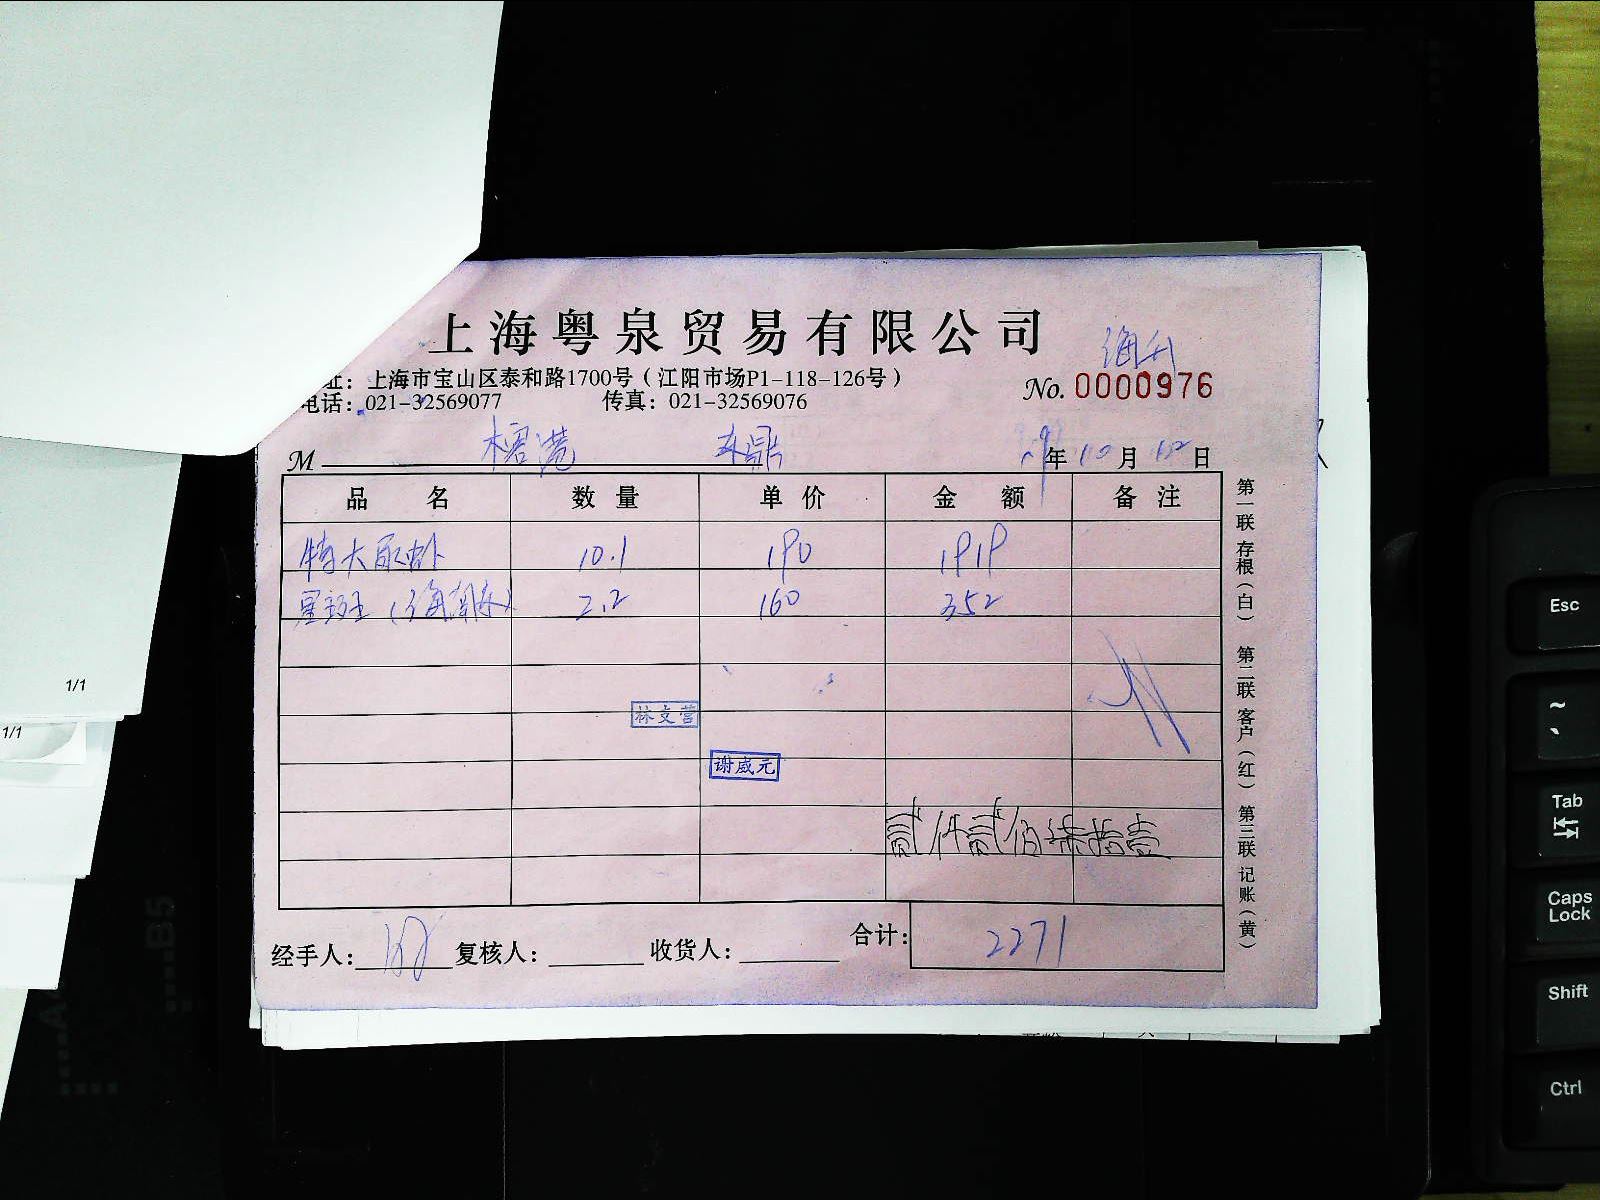 上海粤泉贸易有限公司
址：上海市宝山区泰和路1700号（江阳市场P1-118-126号）
No. 0000976
电话：021-32569077 传真：021-32569076
M 年 10 月 12 日
品名 数量 单价 金额 备注
特大尿虾 10.1 190 1919
2.2 160 352
林文营
谢威元
贰仟贰佰柒拾壹
经手人： 复核人： 收货人： 合计： 2271
第一联 存根（白） 第二联 客户（红） 第三联 记账（黄）
1/1
1/1
B5
A4
Esc
~
`
Tab
Caps Lock
Shift
Ctrl